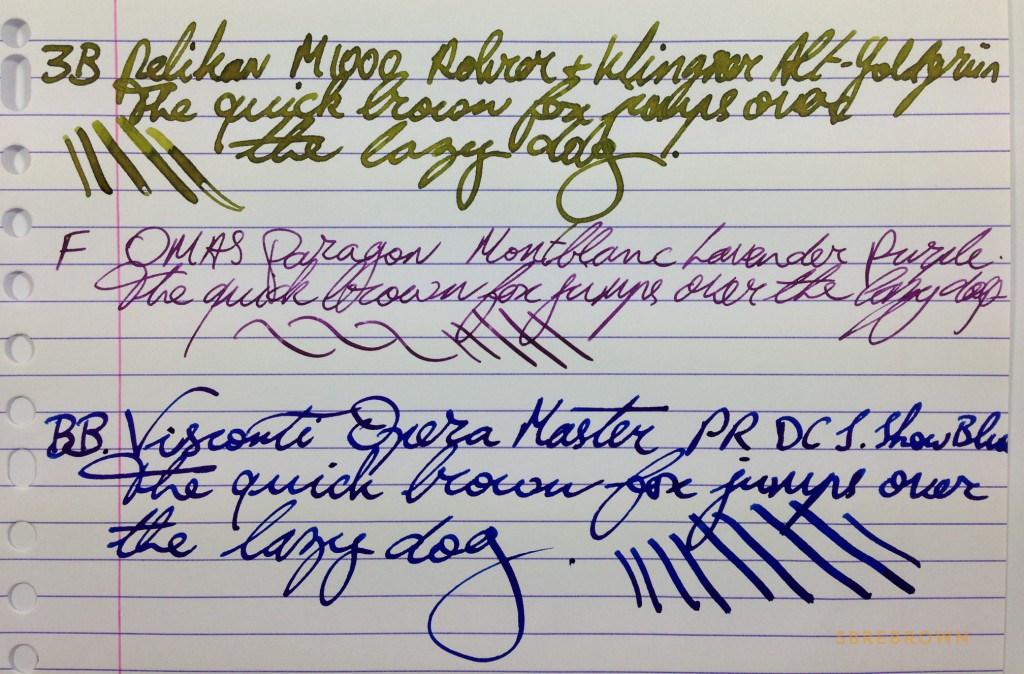 3B Pelikan M1000 Rohrer + Klingner Alt-Goldgrün
The quick brown fox jumps over
the lazy dog.
F OMAS Paragon Montblanc Lavender Purple.
The quick brown fox jumps over the lazy dog
BB. Visconti Opera Master PR DC S. Show Blue
The quick brown fox jumps over
the lazy dog.
SBREBROWN